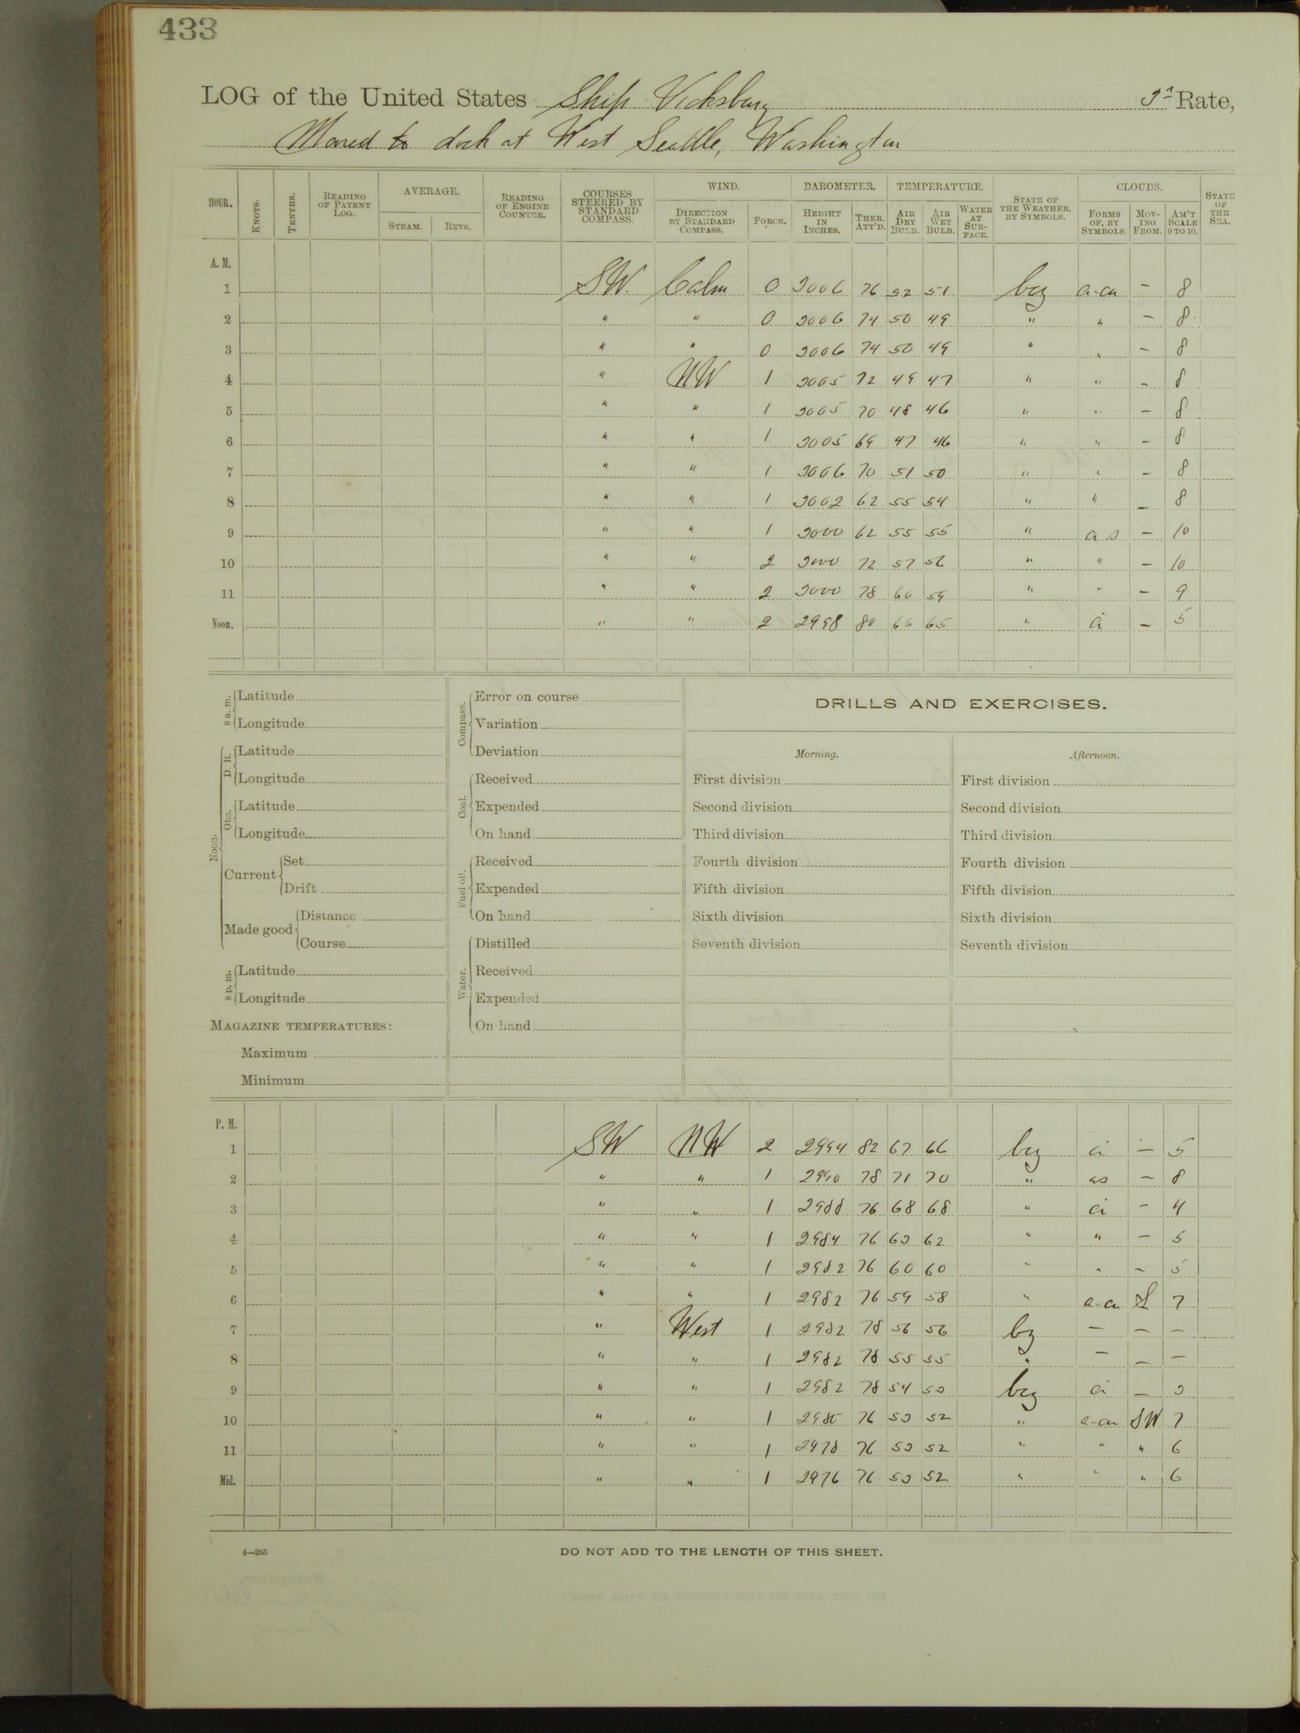 433
LOG of the United States Ship Vicksburg 3d Rate,
Moored to dock at West Seattle, Washington
HOUR. KNOTS. TENTHS. READING OF PATENT LOG. AVERAGE. STEAM. REVS. READING OF ENGINE COUNTER. COURSES STEERED BY STANDARD COMPASS. WIND. DIRECTION BY STANDARD COMPASS. FORCE. BAROMETER. HEIGHT IN INCHES. THER. ATT'D. TEMPERATURE. AIR DRY BULB. AIR WET BULB. WATER AT SURFACE. STATE OF THE WEATHER, BY SYMBOLS. CLOUDS. FORMS OF, BY SYMBOLS. MOVING FROM. AM'T SCALE 0 TO 10. STATE OF THE SEA.
A. M.
1 SW. Calm 0 3006 76 52 51 bcz a-cu - 8
2 " " 0 3006 74 50 49 " " - 8
3 " " 0 3006 74 50 49 " " - 8
4 " NW 1 3005 72 49 47 " " - 8
5 " " 1 3005 70 48 46 " " - 8
6 " " 1 3005 69 47 46 " " - 8
7 " " 1 3006 70 51 50 " " - 8
8 " " 1 3002 62 55 54 " " - 8
9 " " 1 3000 62 55 55 " a s - 10
10 " " 2 3000 72 57 56 " " - 10
11 " " 2 3000 78 60 59 " " - 9
Noon. " " 2 2998 80 66 65 " ci - 5
8 a. m. Latitude
Longitude
Noon. D. R. Latitude
Longitude
Obs. Latitude
Longitude
Current Set
Drift
Made good Distance
Course
8 p. m. Latitude
Longitude
MAGAZINE TEMPERATURES:
Maximum
Minimum
Compass. Error on course
Variation
Deviation
Coal. Received
Expended
On hand
Fuel oil. Received
Expended
On hand
Water. Distilled
Received
Expended
On hand
DRILLS AND EXERCISES.
Morning.
First division
Second division
Third division
Fourth division
Fifth division
Sixth division
Seventh division
Afternoon.
First division
Second division
Third division
Fourth division
Fifth division
Sixth division
Seventh division
P. M.
1 SW NW 2 2994 82 67 66 bcz ci - 5
2 " " 1 2990 78 71 70 " as - 8
3 " " 1 2988 76 68 68 " ci - 4
4 " " 1 2984 76 63 62 " " - 5
5 " " 1 2982 76 60 60 " " - 5
6 " " 1 2982 76 59 58 " a-cu S 7
7 " West 1 2982 78 56 56 bz - - -
8 " " 1 2982 78 55 55 " - - -
9 " " 1 2982 78 54 53 bcz ci - 3
10 " " 1 2980 76 53 52 " a-cu SW 7
11 " " 1 2978 76 53 52 " " " 6
Mid. " " 1 2976 76 53 52 " " " 6
4—265
DO NOT ADD TO THE LENGTH OF THIS SHEET.